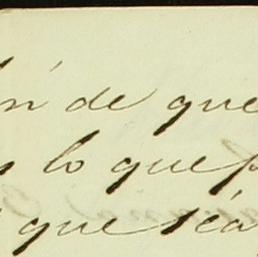 ón de que
lo que
que séa